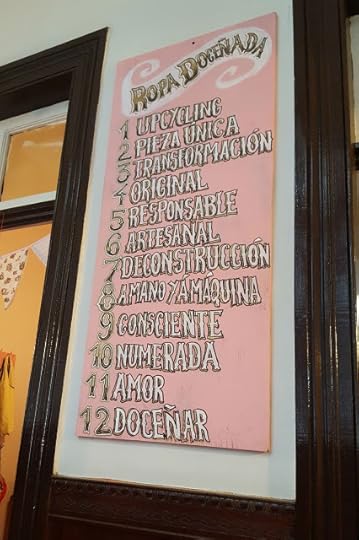 ROPA DOCEÑADA
1 UPCYCLING
2 PIEZA UNICA
3 TRANSFORMACIÓN
4 ORIGINAL
5 RESPONSABLE
6 ARTESANAL
7 DECONSTRUCCIÓN
8 A MANO Y A MÁQUINA
9 CONSCIENTE
10 NUMERADA
11 AMOR
12 DOCEÑAR